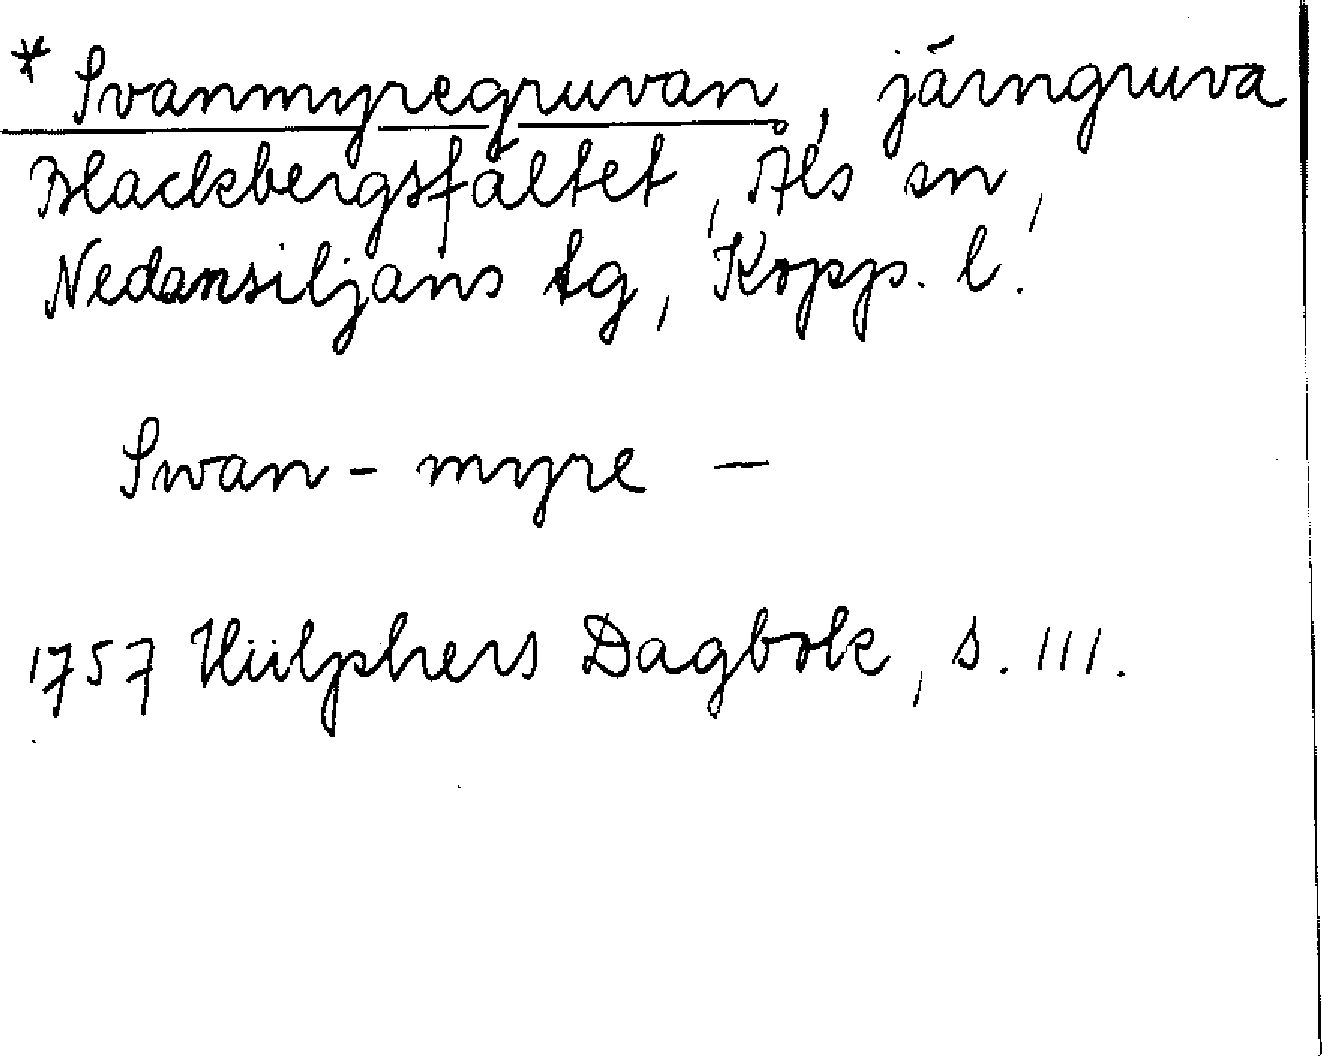 * Svanmyregruvan, järngruva
Blackbergsfältet, Åls sn,
Nedansiljans tg, Kopp. l.
Swan - myre —
1757 Hülphers Dagbok, s. 111.